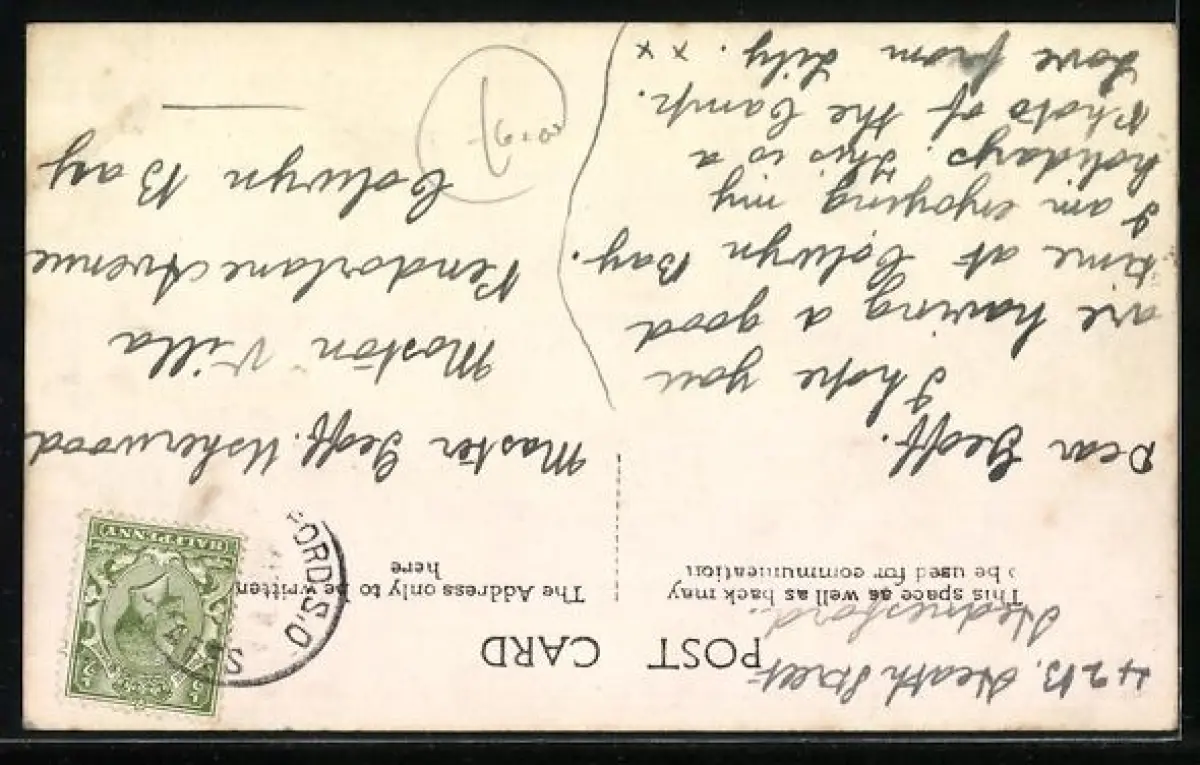 42B. Heath Street
Hednesford.
POST CARD
This space as well as back may
be used for communication
The Address only to be written
here
Dear Geoff.
I hope you
are having a good
time at Colwyn Bay.
I am enjoying my
holidays. This is a
Photo of the Camp.
Love from Lily. x x
Master Geoff. Usherwood
Moston Villa
Pendorlane Avenue
Colwyn Bay
HALFPENNY
ORD S.O
STAFFS